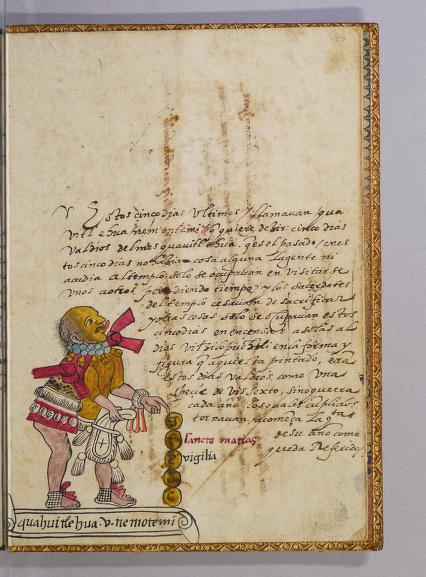 Estos cinco dias ultimos / llamavan / qua
vitl ehua nemontemi q quiere dezir cinco dias
valdios del mes quavitlehua, q es el pasado / en es
tos cinco dias no hazia cosa alguna la gente ni
acudia al templo solo se ocupavan en visitarse
unos a otros / perdiendo tiempo / y los sacerdotes
del templo cesavan de sacrificar
y otras cosas solo se ocupavan estos
cinco dias en encensar a solas al
dios en la forma y
figura q aqui esta pintado, era
estos dias valdios, como una
specie de visexto, sino que era
cada año
tornavan a comenzar
de su año como
queda Referido
sancto matias
vigilia
quahuitlehua · v · nemotemi